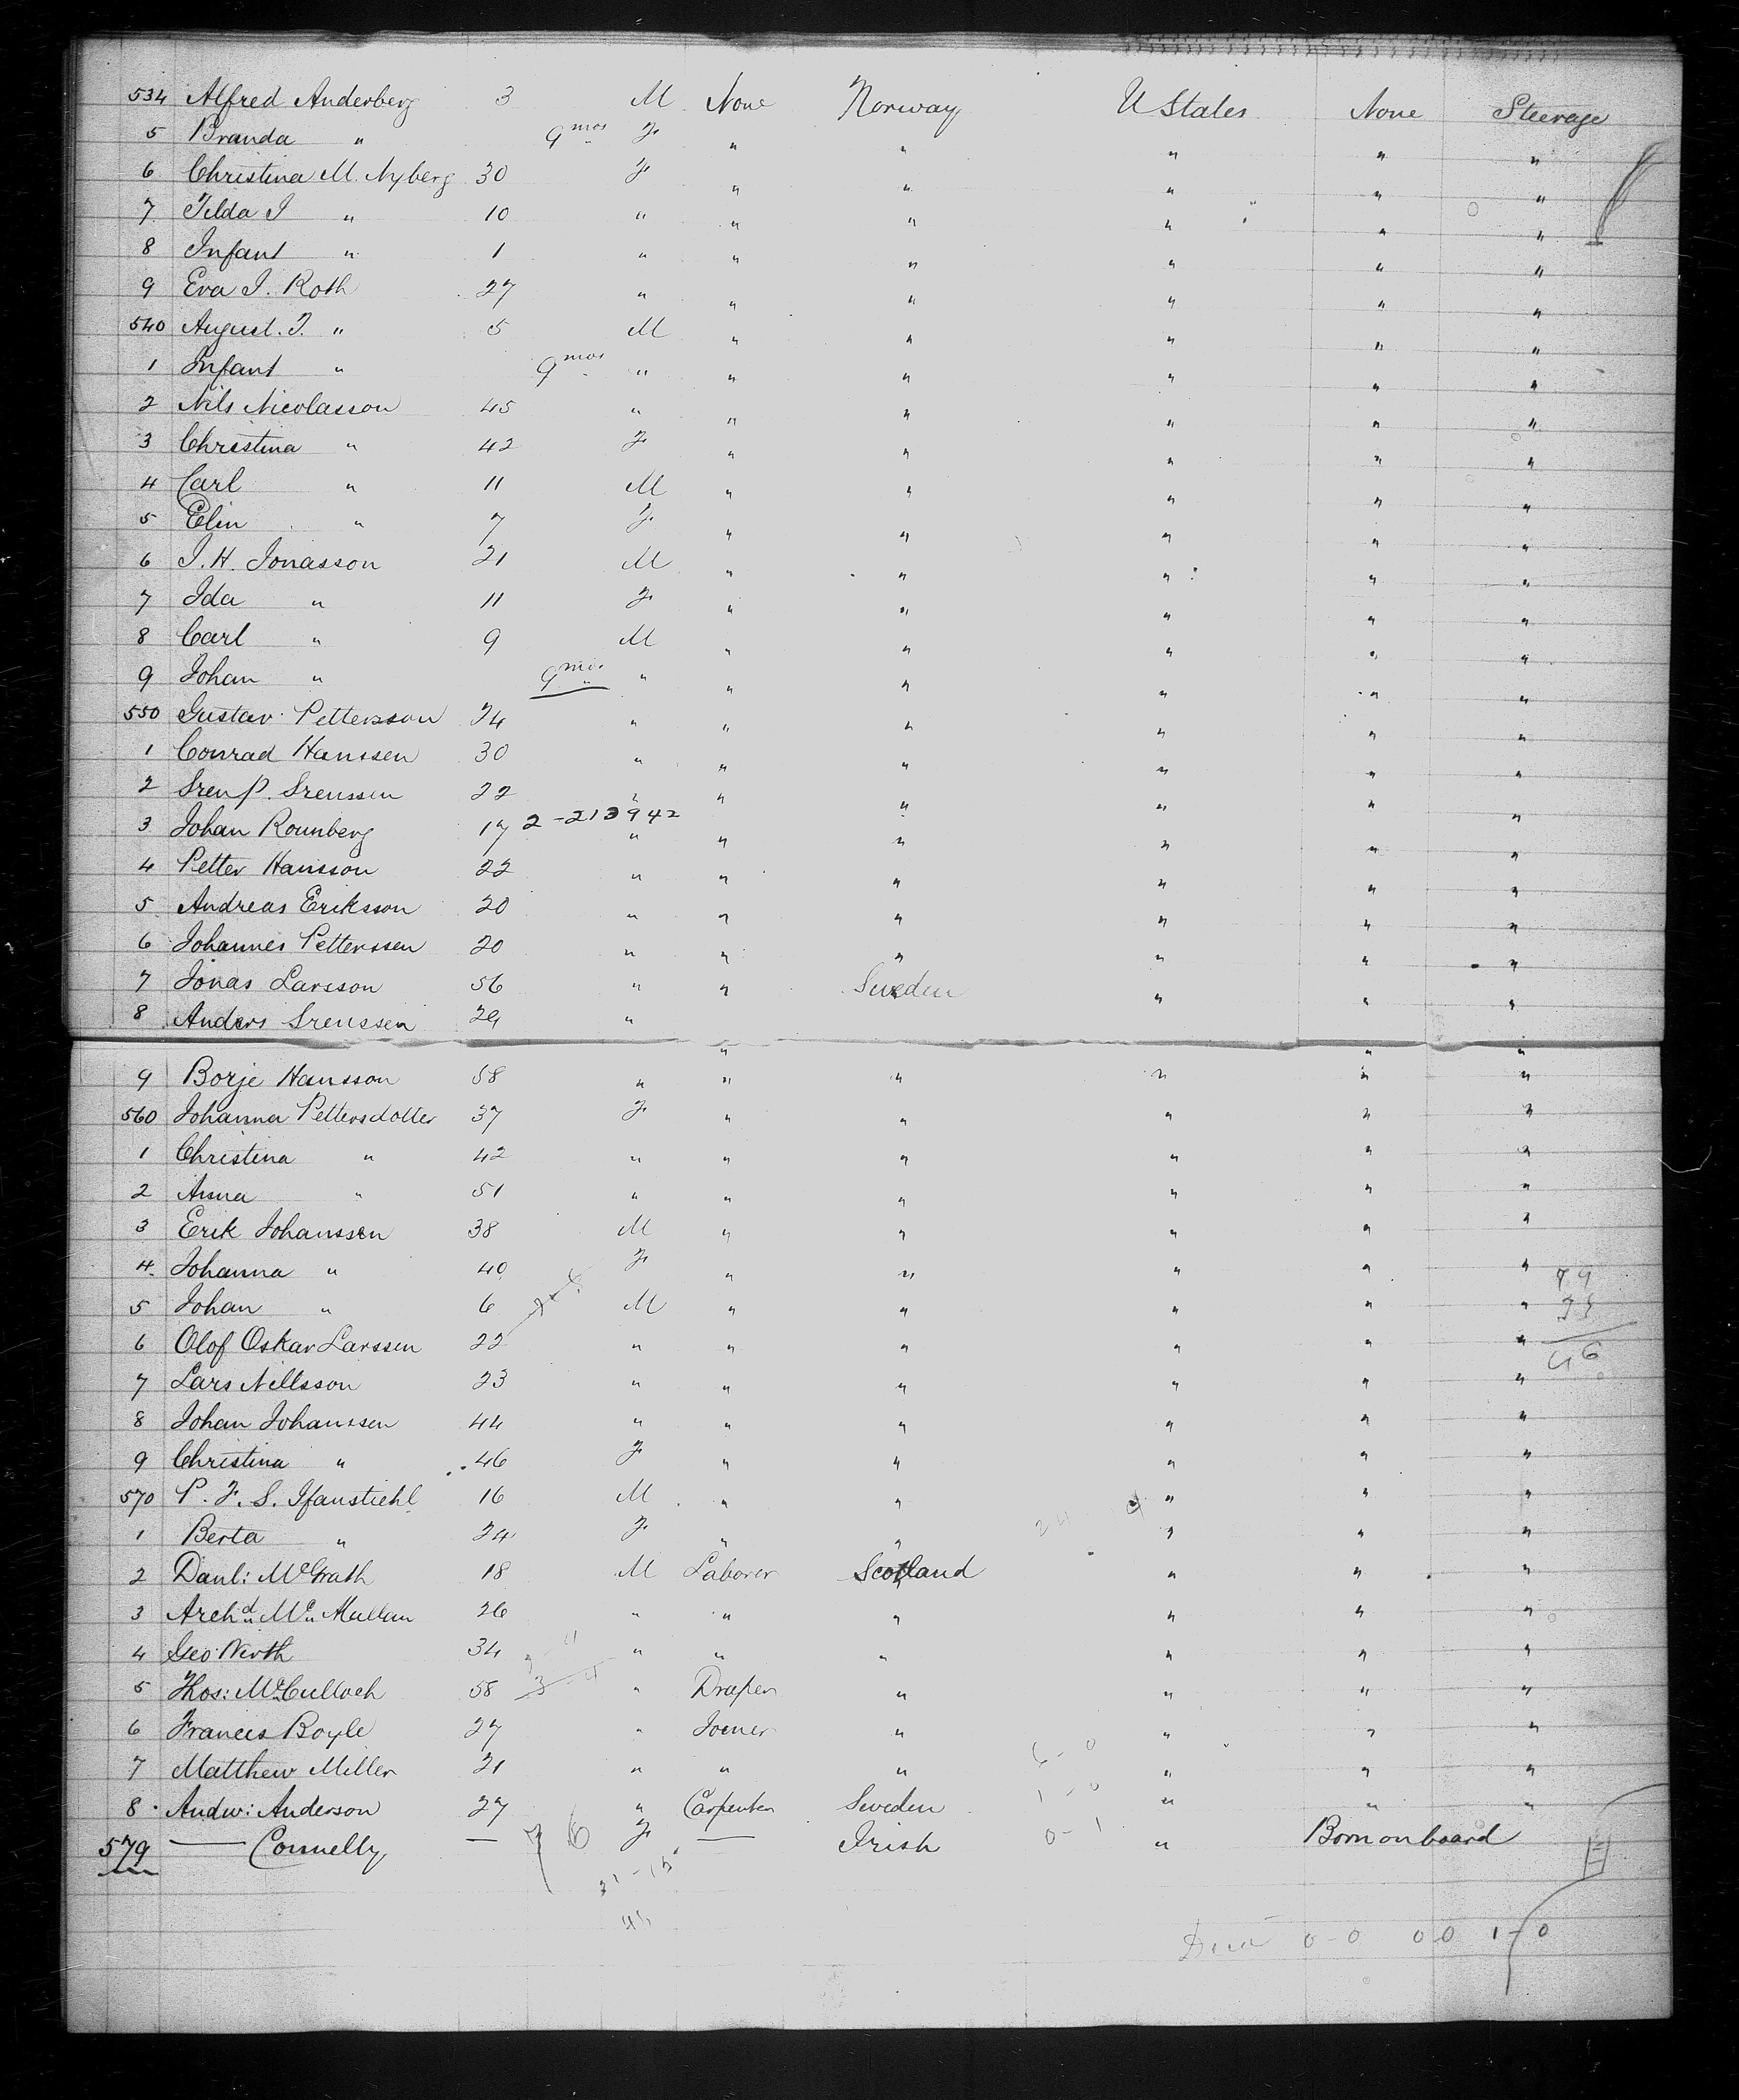 534 Alfred Anderberg 3 M None Norway U States None Steerage
5 Branda " 9 mos F " " " " "
6 Christina M. Nyberg 30 F " " " " "
7 Tilda I " 10 " " " " " "
8 Infant " 1 " " " " " "
9 Eva I. Roth 27 " " " " " "
540 August. T. " 5 M " " " " "
1 Infant " 9 mos " " " " " "
2 Nils Nicolasson 45 " " " " " "
3 Christina " 42 F " " " " "
4 Carl " 11 M " " " " "
5 Elin " 7 F " " " " "
6 I. H. Jonasson 21 M " " " " "
7 Ida " 11 F " " " " "
8 Carl " 9 M " " " " "
9 Johan " 9 mos " " " " " "
550 Gustav Pettersson 24 " " " " " "
1 Conrad Hanssen 30 " " " " " "
2 Sren P. Srenssen 22 " " " " " "
3 Johan Rounberg 17 2-213942 " " " " " "
4 Petter Hansson 22 " " " " " "
5 Andreas Eriksson 20 " " " " " "
6 Johannes Petterssen 20 " " " " " "
7 Jonas Larsson 56 " " Sweden " " "
8 Anders Srenssen 24 " " " "
9 Borje Hansson 58 " " " " " "
560 Johanna Pettersdotter 37 F " " " " "
1 Christina " 42 " " " " " "
2 Anna " 51 " " " " " "
3 Erik Johanssen 38 M " " " " "
4 Johanna " 40 F " " " " "
5 Johan " 6 M " " " " "
6 Olof Oskar Larssen 22 " " " " " "
7 Lars Nillsson 23 " " " " " "
8 Johan Johanssen 44 " " " " " "
9 Christina " 46 F " " " " "
570 P. F. S. Ifanstiehl 16 M " " " " "
1 Berta " 24 F " " " " "
2 Danl: McGrath 18 M Laborer Scotland " " "
3 Archd McMullan 26 " " " " " "
4 Geo Werth 34 " " " " " "
5 Thos: McCulloch 58 " Draper " " " "
6 Frances Boyle 27 " Joiner " " " "
7 Matthew Miller 21 " " " " " "
8 Andw: Anderson 27 " Carpenter Sweden " " "
579 — Connelly — F — Irish " Born on board
0-0 00 1-0